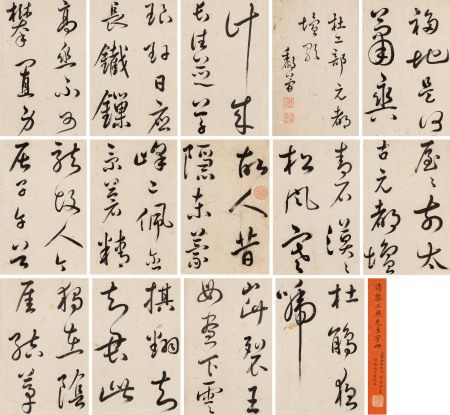 福地是何
蕭爽
杜工部元都
壇歌
計成
長往芝草
琅玕日應
長鐵鎖
高垂不可
攀置身
屋〻前太
古元都壇
青石漠〻
松風寒
故人昔
隱東蒙
峰已佩含
景蒼精
龍故人今
居子午谷
杜鵑夜
啼
山竹裂王
母晝下雲
旗翻知
君此
獨在陰
崖結茅